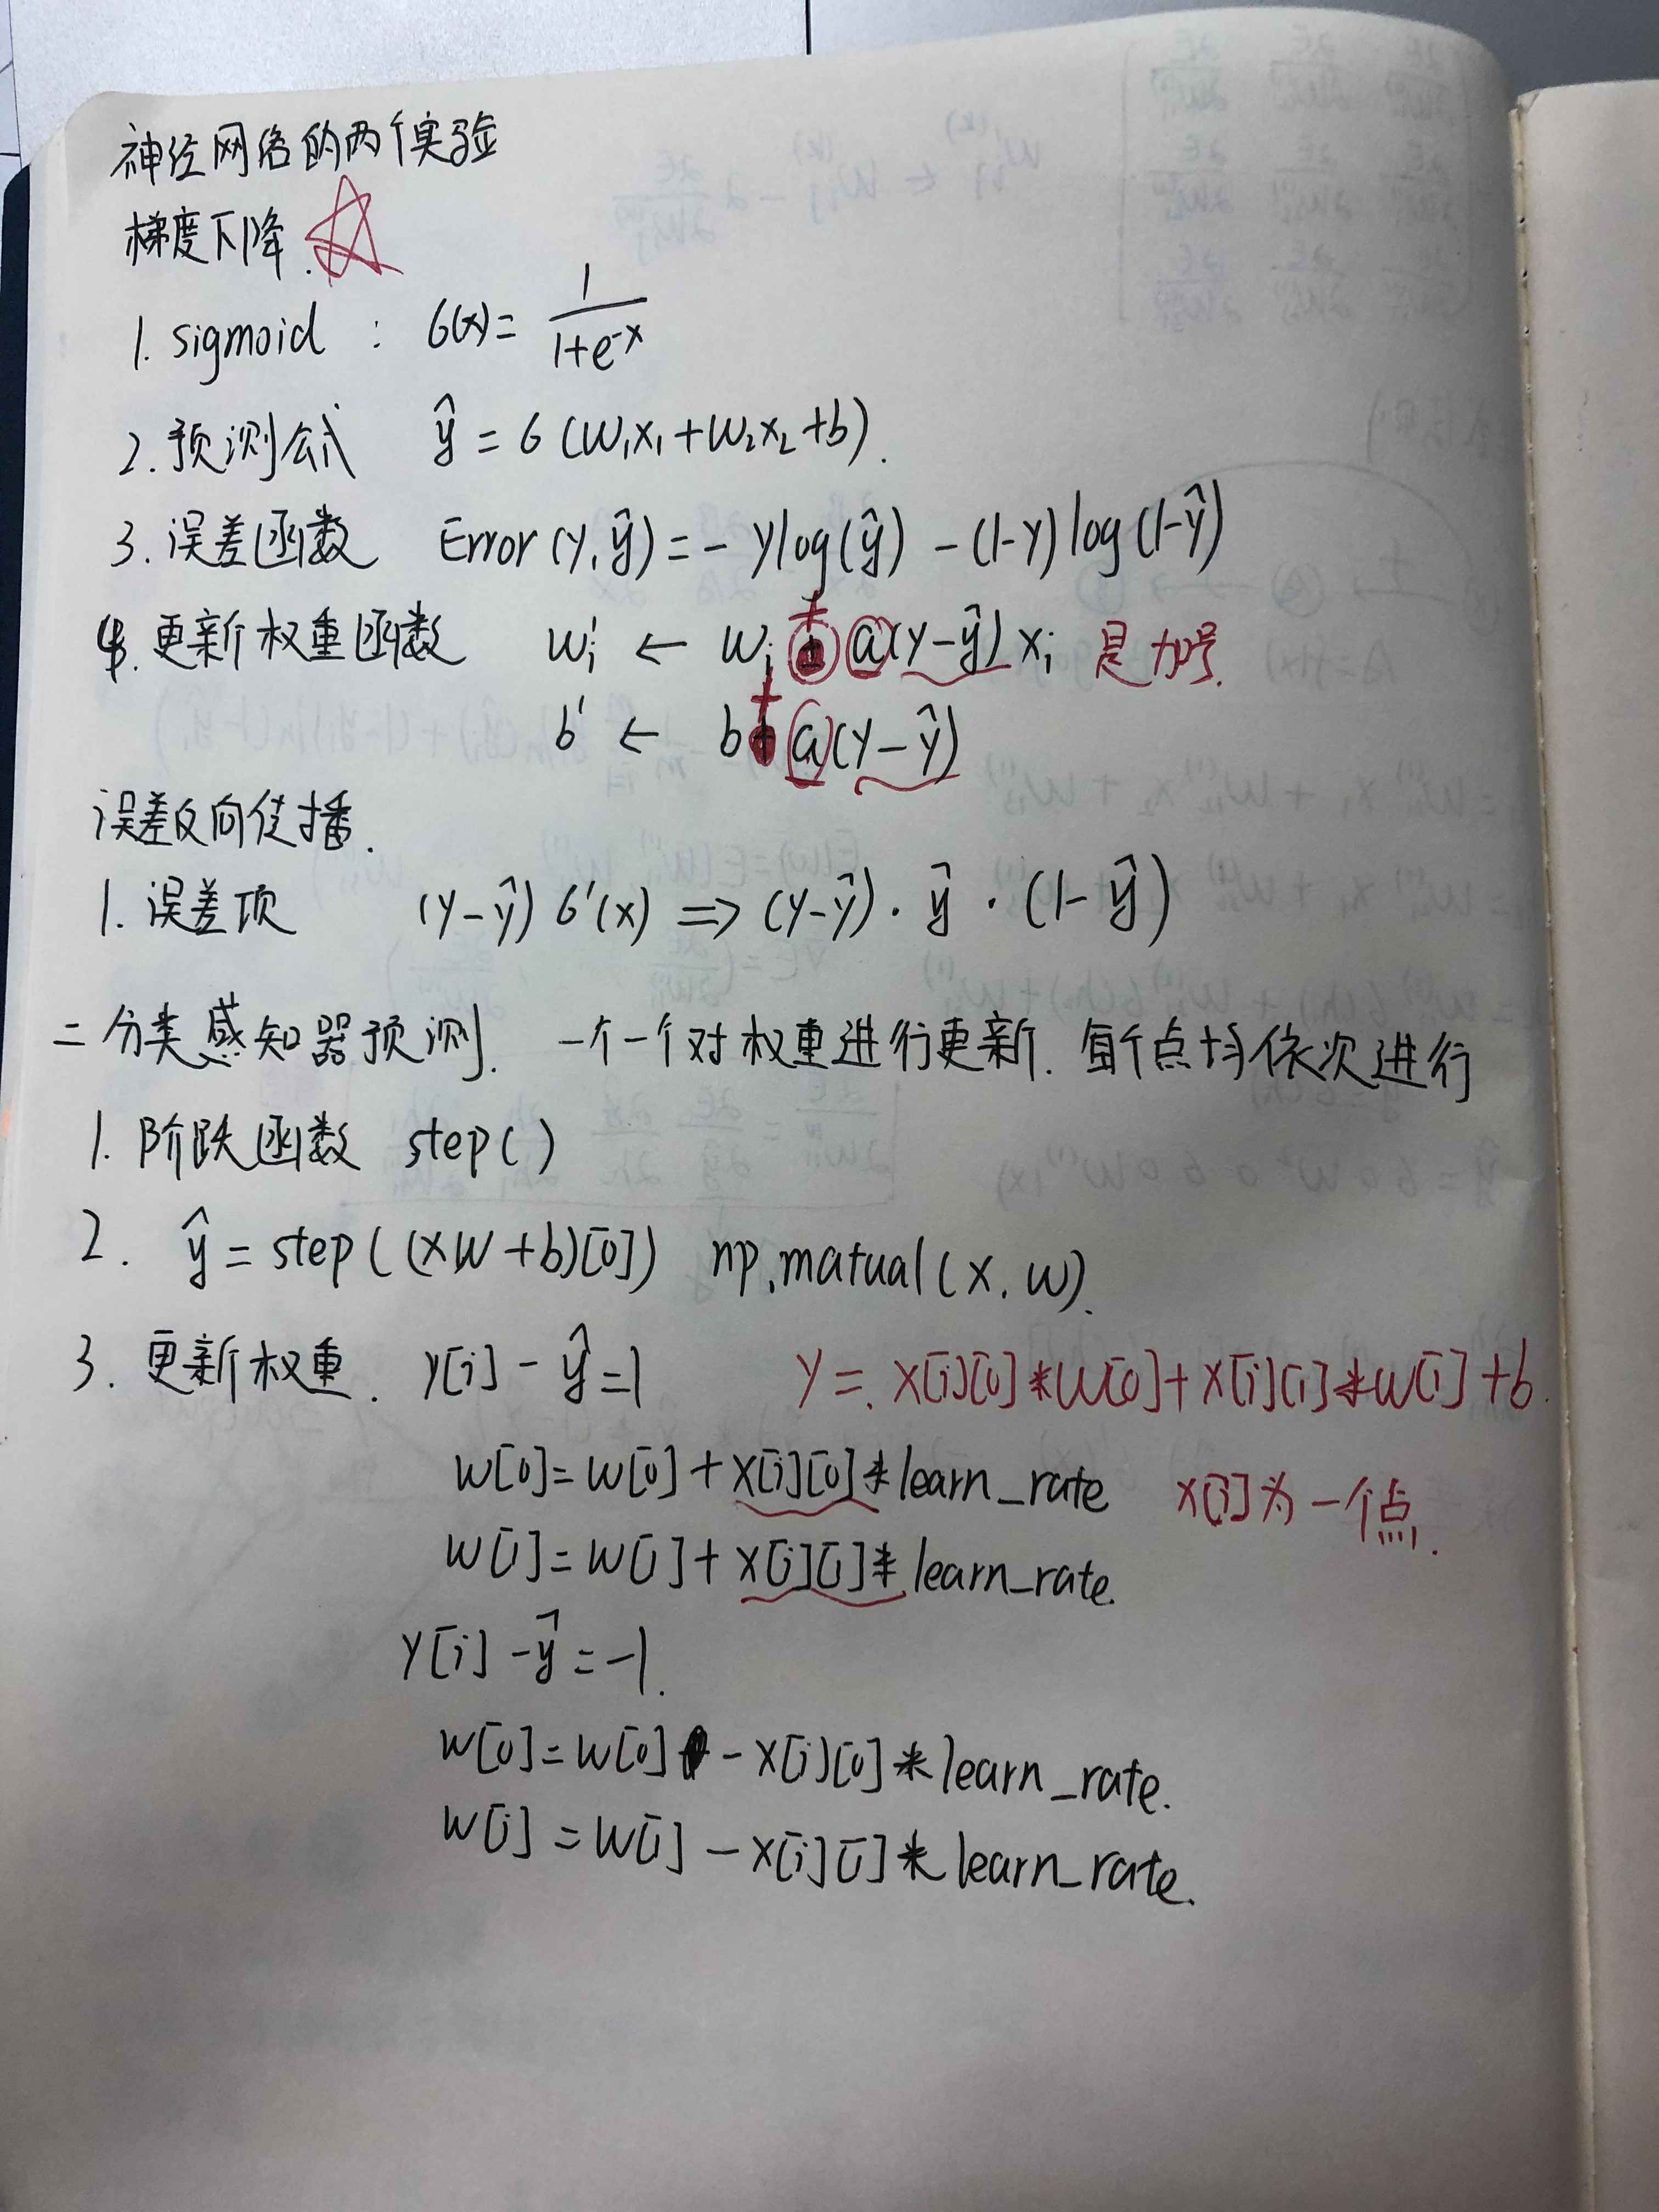 神经网络的两个实验
梯度下降.
1. sigmoid : σ(x) = 1/(1+e^-x)
2. 预测公式 ŷ = σ(w₁x₁+w₂x₂+b).
3. 误差函数 Error(y,ŷ) = - ylog(ŷ) - (1-y)log(1-ŷ)
4. 更新权重函数 wᵢ' ← wᵢ + a(y-ŷ)xᵢ 是加号.
b' ← b + a(y-ŷ)
误差反向传播.
1. 误差项 (y-ŷ)σ'(x) ⇒ (y-ŷ)·ŷ·(1-ŷ)
二分类感知器预测. 一个一个对权重进行更新. 每个点均依次进行
1. 阶跃函数 step()
2. ŷ = step((xw+b)[0]) np.matual(x,w).
3. 更新权重. y[i] - ŷ = 1 y = x[i][0]*w[0]+x[i][1]*w[1]+b.
w[0] = w[0] + x[i][0]*learn_rate x[i]为一个点.
w[1] = w[1] + x[i][1]*learn_rate.
y[i] - ŷ = -1.
w[0] = w[0] - x[i][0]*learn_rate.
w[1] = w[1] - x[i][1]*learn_rate.